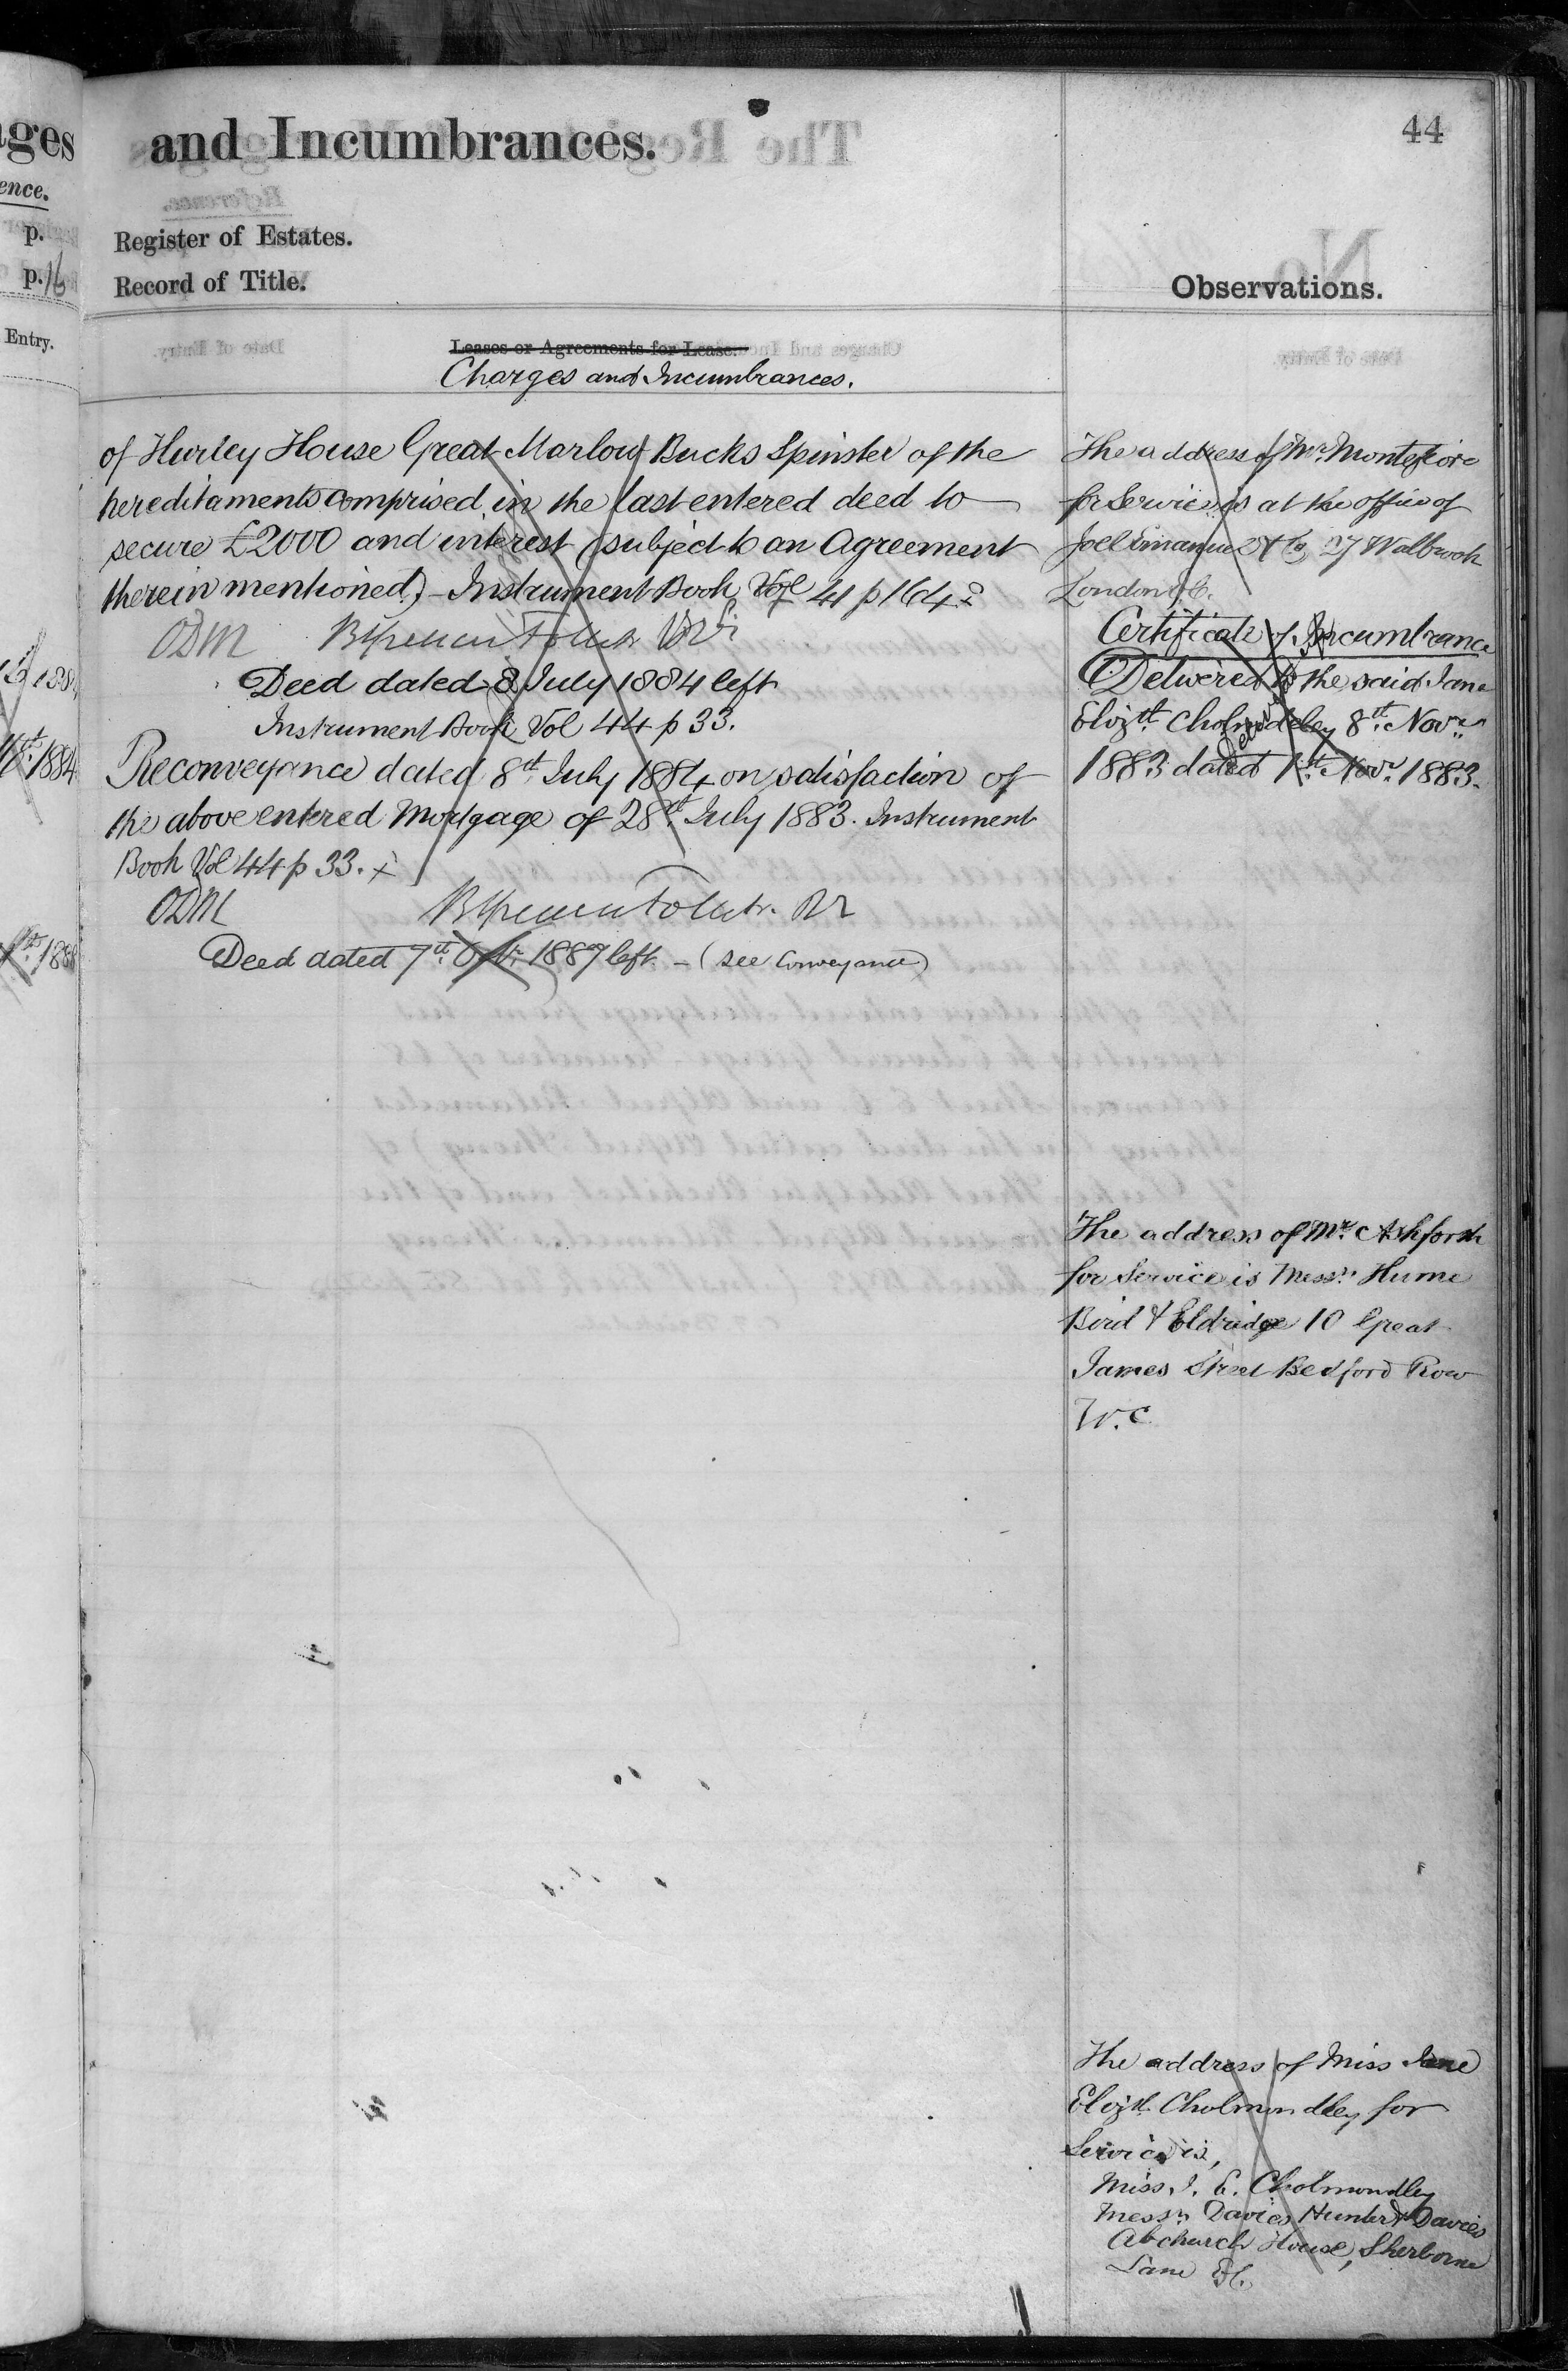 ages
ence.
p.
p. 16
Entry.
1884
1888
and Incumbrances.
44
Register of Estates.
Record of Title.
Observations.
Leases or Agreements for Lease.
Charges and Incumbrances.
of Hurley House Great Marlow Bucks Spinster of the
hereditaments comprised in the last entered deed to
secure £2000 and interest (subject to an Agreement
therein mentioned) - Instrument Book Vol 41 p 164
ODM
Deed dated 8 July 1884 left
Instrument Book Vol 44 p 33.
Reconveyance dated 8th July 1884 on satisfaction of
the above entered Mortgage of 28th July 1883. Instrument
Book Vol 44 p 33. x
ODM
Deed dated 7th Octr 1887 left - (see Conveyance)
The address of Mr. Montefiore
for Service is at the office of
Joel Emanuel & Co, 27 Walbrook
London E.C.
Certificate of Incumbrance
Delivered to the said Jane
Elizth Cholmondeley 8th Novr
1883 dated 1st Novr 1883.
The address of Mr. C Ashforth
for Service is Messrs Hume
Bird & Eldridge 10 Great
James Street Bedford Row
W.C
The address of Miss Jane
Elizth Cholmondley for
Service is,
Miss J. E. Cholmondley
Messrs Davies Hunter & Davies
Abchurch House, Sherborne
Lane E.C.